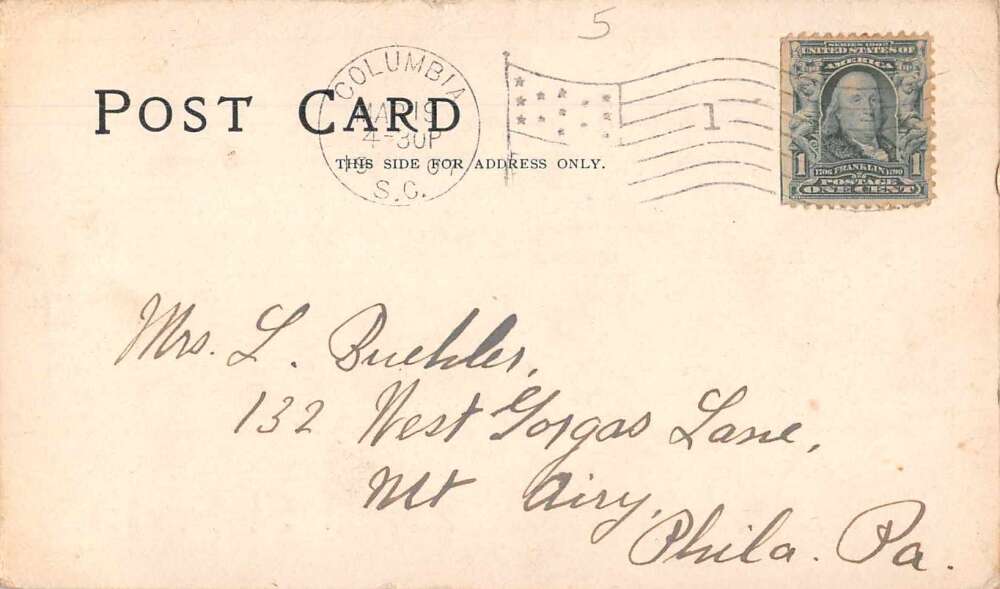 5
POST CARD
THIS SIDE FOR ADDRESS ONLY.
COLUMBIA
MAR 19
4-30P
S.C.
1
SERIES 1902
UNITED STATES OF
AMERICA
1 1
1706 FRANKLIN 1790
POSTAGE
ONE CENT
Mrs. L. Buehler,
132 West Gorgas Lane,
Mt Airy,
Phila. Pa.